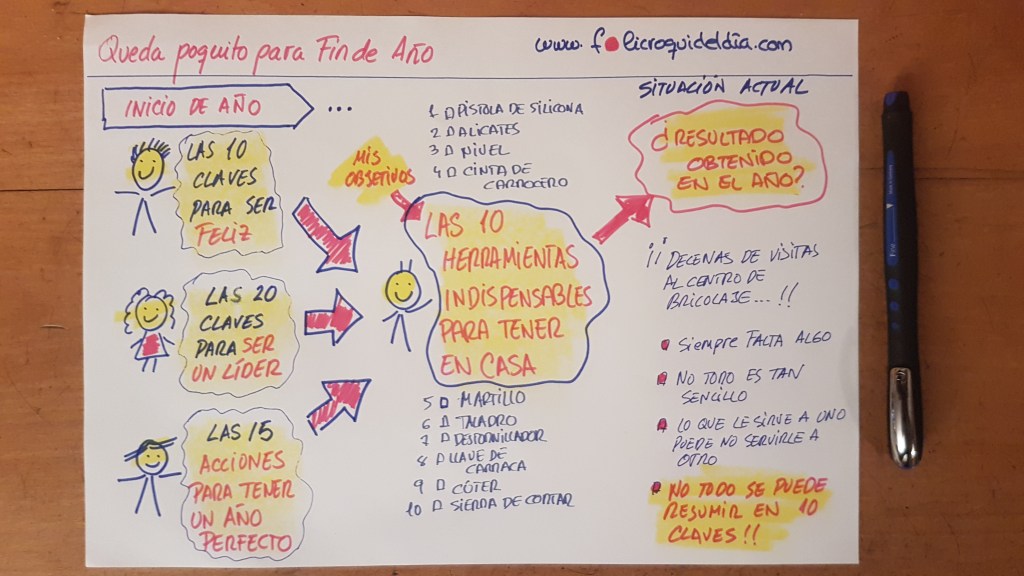 Queda poquito para Fin de Año
www.folicroquideldia.com
INICIO DE AÑO
...
LAS 10
CLAVES
PARA SER
FELIZ
LAS 20
CLAVES
PARA SER
UN LÍDER
LAS 15
ACCIONES
PARA TENER
UN AÑO
PERFECTO
MIS
OBJETIVOS
1 PISTOLA DE SILICONA
2 ALICATES
3 NIVEL
4 CINTA DE
CARROCERO
LAS 10
HERRAMIENTAS
INDISPENSABLES
PARA TENER
EN CASA
5 MARTILLO
6 TALADRO
7 DESTORNILLADOR
8 LLAVE DE
CARRACA
9 CÚTER
10 SIERRA DE CORTAR
SITUACIÓN ACTUAL
¿RESULTADO
OBTENIDO
EN EL AÑO?
¡¡ DECENAS DE VISITAS
AL CENTRO DE
BRICOLAJE...!!
SIEMPRE FALTA ALGO
NO TODO ES TAN
SENCILLO
LO QUE LE SIRVE A UNO
PUEDE NO SERVIRLE A
OTRO
NO TODO SE PUEDE
RESUMIR EN 10
CLAVES!!